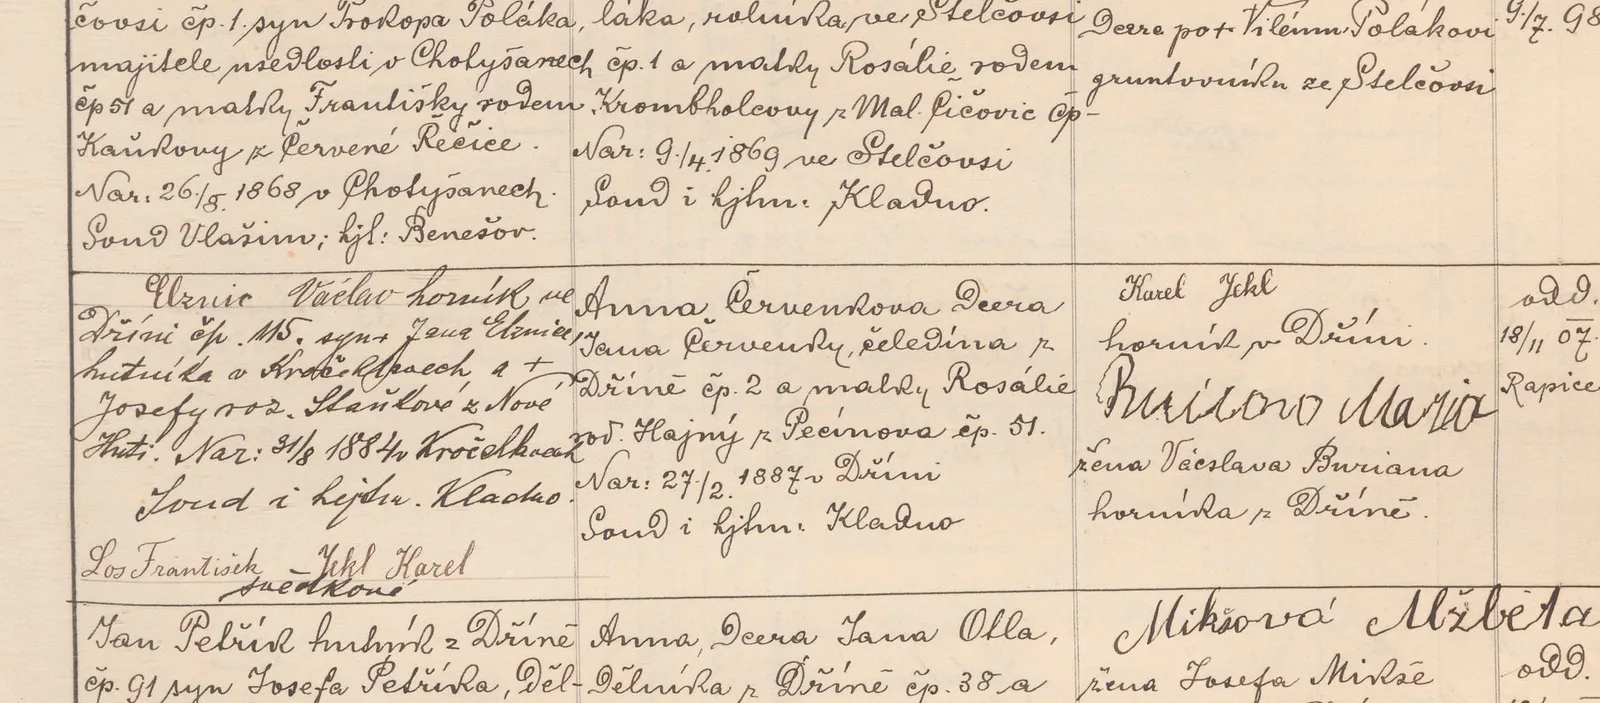 čovsi čp. 1. syn Prokopa Poláka,
majitele usedlosti v Chotýšanech
čp 51 a matky Františky rodem
Kaňkovy z Červené Řečice.
Nar: 26./8. 1868 v Chotýšanech.
Soud Vlašim; hjl: Benešov.
láka, rolníka ve Stelčovsi
čp. 1 a matky Rosálie rodem
Krombholcovy z Mal. Čičovic čp-
Nar: 9./4. 1869 ve Stelčovsi
Soud i hjtm: Kladno.
Dcera po + Vilému Polákovi
gruntovníku ze Stelčovsi
9./7. 98
Elznic Václav horník ve
Dříni čp. 115. syn + Jana Elznice,
hutníka v Kročehlavech a +
Josefy roz. Staňkové z Nové
Huti. Nar: 31/8 1884 v Kročehlavech
Soud i hejtm. Kladno.
Los František Jekl Karel
svědkové
Anna Červenkova dcera
Jana Červenky, čeledína z
Dříně čp. 2 a matky Rosálie
rod. Hajný z Pecínova čp. 51.
Nar: 27./2. 1887 v Dříni
Soud i hjtm: Kladno
Karel Jekl
horník v Dříni.
Marja
žena Vácslava Buriana
horníka z Dříně.
odd.
18/11 07.
Rapice
Jan Petřík hutník z Dříně
čp. 91 syn Josefa Petříka, děl-
Anna, dcera Jana Otla,
dělníka z Dříně čp. 38 a
Mikšová Alžběta
žena Josefa Mikše
odd.